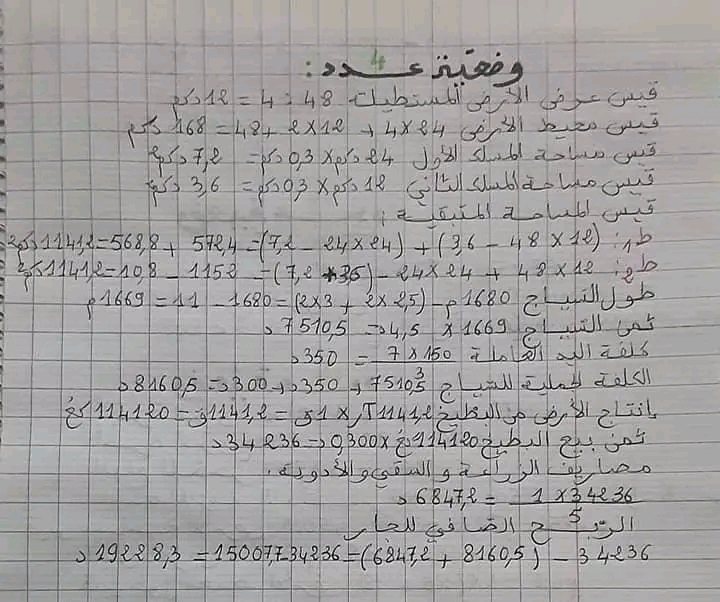 وضعية عدد 4:
قيس عرض الأرض المستطيلة 48 : 4 = 12 دكم
قيس محيط الأرض 24×4 + 12×2 + 48 = 168 دكم
قيس مساحة المسلك الأول 24 دكم × 0,3 دكم = 7,2 دكم²
قيس مساحة المسلك الثاني 12 دكم × 0,3 دكم = 3,6 دكم²
قيس المساحة المتبقية :
ط1: (12×48 - 3,6) + (24×24 - 7,2) = 572,4 + 568,8 = 1141,2 دكم²
ط2: 12×48 + 24×24 - (3,6 + 7,2) = 1152 - 10,8 = 1141,2 دكم²
طول السياج 1680 م - (2,5×2 + 3×2) = 1680 - 11 = 1669 م
ثمن السياج 1669 × 4,5 د = 7510,5 د
كلفة اليد العاملة 150×7 = 350 د
3
الكلفة الجملية للسياج 7510,5 + 350 د + 300 د = 8160,5 د
إنتاج الأرض من البطيخ 1141,2 آر × 1 ق = 1141,2 ق = 114120 كغ
ثمن بيع البطيخ 114120 كغ × 0,300 د = 34236 د
مصاريف الزراعة و السقي والأدوية :
34236 × 1 = 6847,2 د
5
الربح الصافي للجار
34236 - (8160,5 + 6847,2) = 34236 15007,7 = 19228,3 د